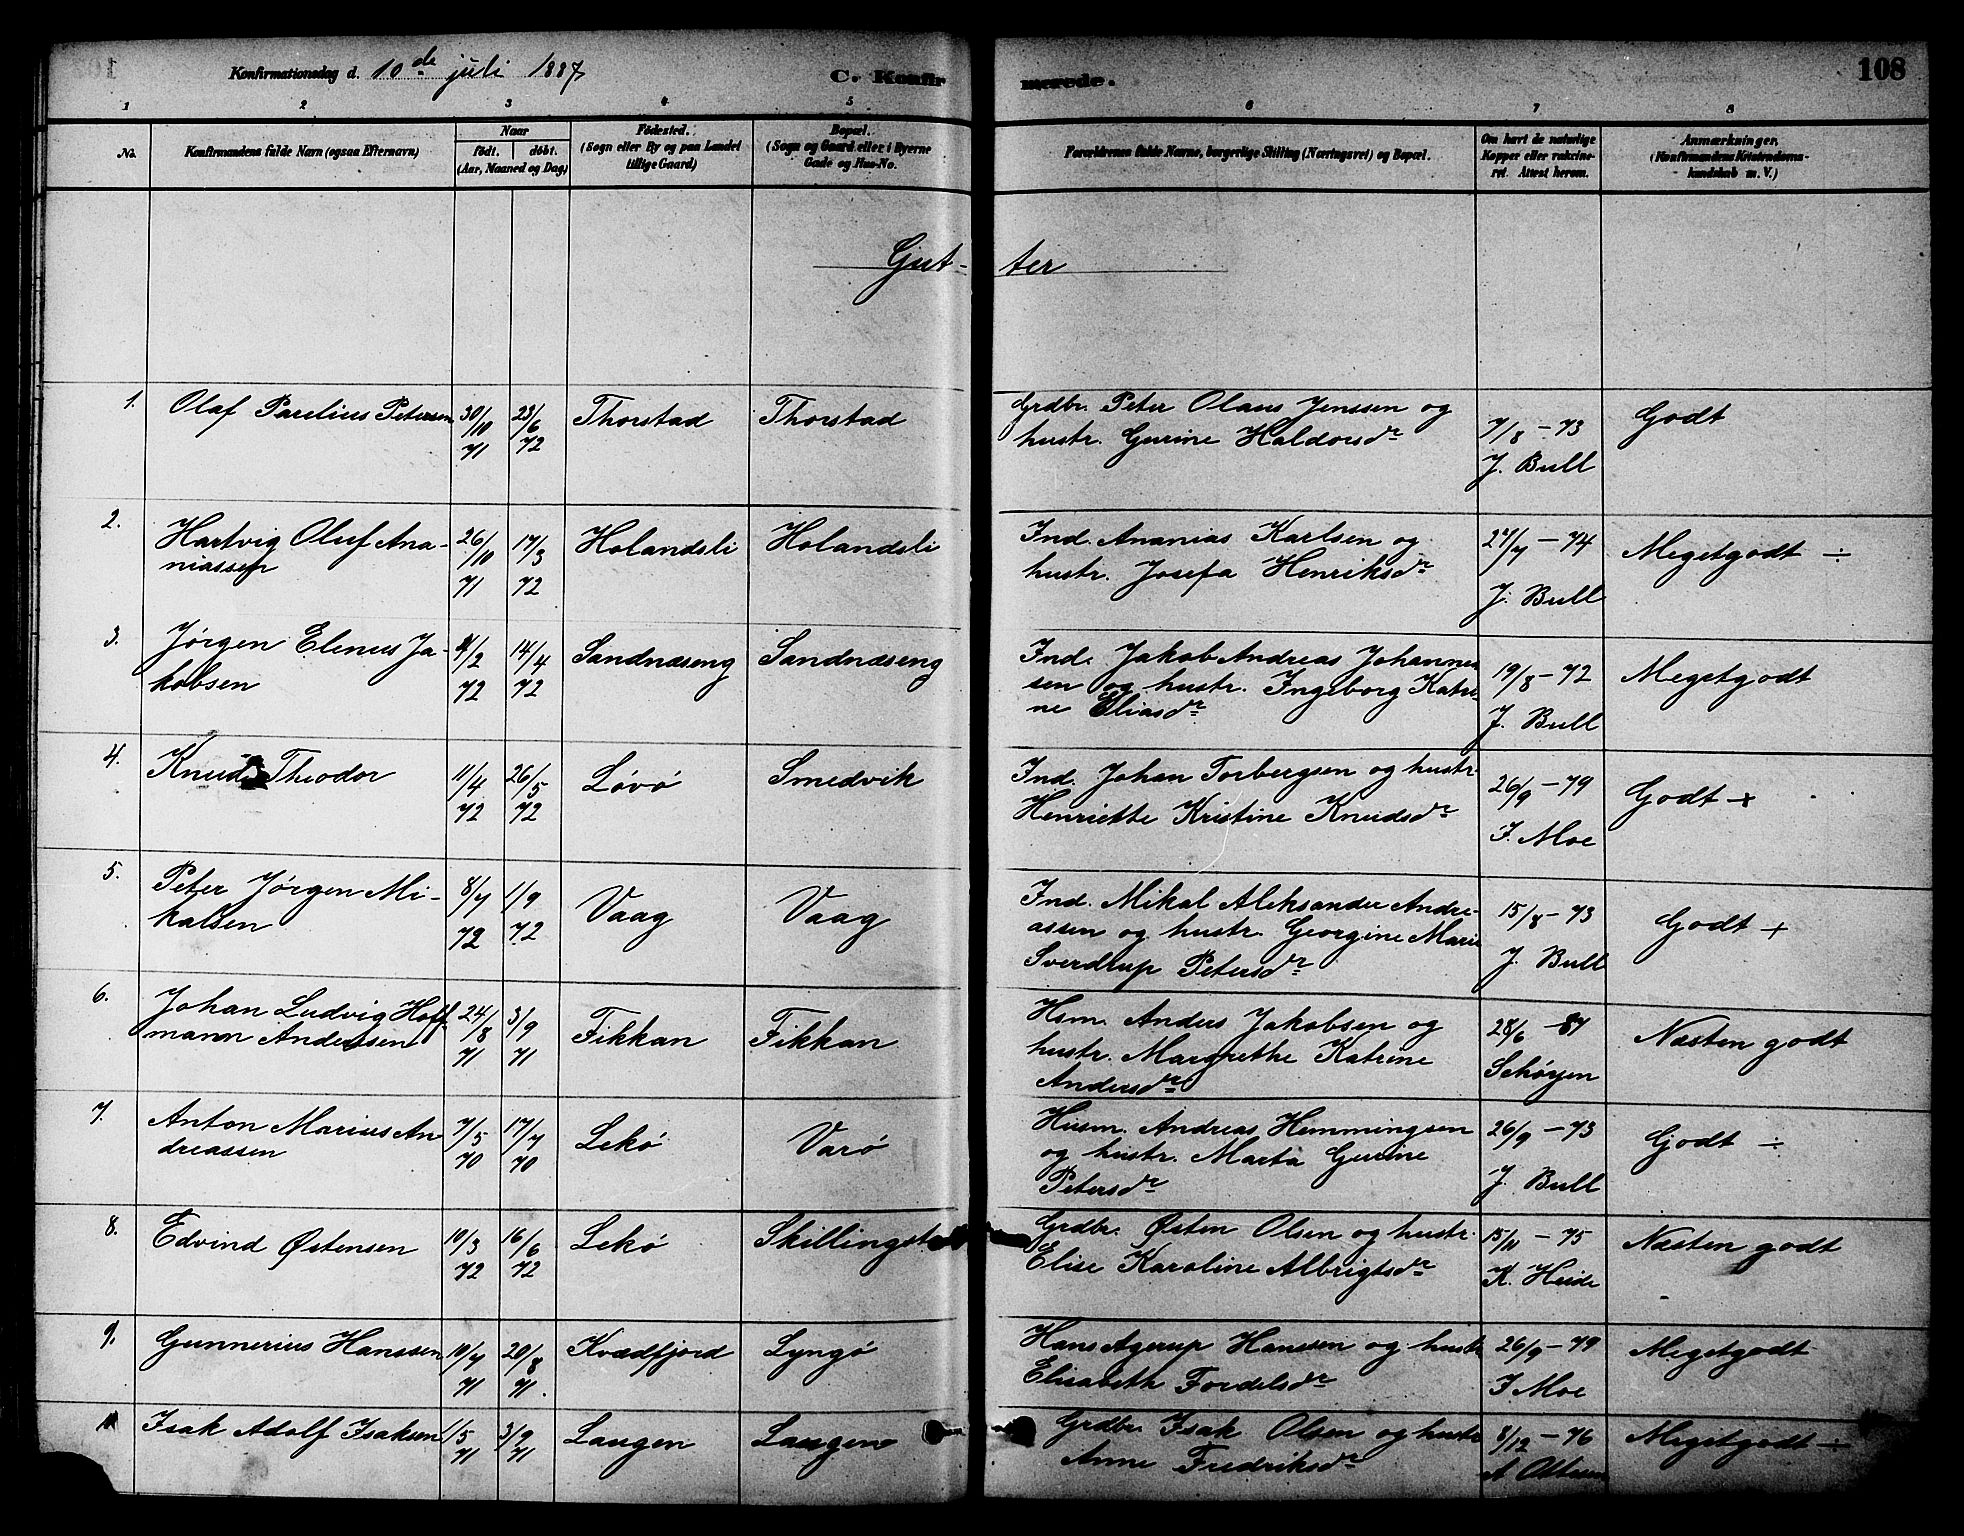 Konfirmationsdag d. 10de juli 1887
C. Konfirmerede.
108
1 2 3 4 5 6 7 8
No.
Konfirmandens fulde Navn (ogsaa Efternavn)
Naar
født. døbt.
(Aar, Maaned og Dag)
Fødested.
(Sogn eller By og paa Landet
tillige Gaard)
Bopæl.
(Sogn og Gaard eller i Byerne
Gade og Hus-No.
Forældrenes fulde Navne, borgerlige Stilling (Næringsvei) og Bopæl.
Om havt de naturlige
Kopper eller vaccine-
ret. Attest herom.
Anmærkninger.
(Konfirmandens Kristendoms-
kundskab m. V.)
Gut- ter
1. Olaf Parelius Petersen 30/10 71 23/6 72 Thorstad Thorstad
Grdbr. Peter Olaus Jenssen og
hustr. Gurine Haldorsdr
7/8 - 73
J. Bull
Godt
2. Hartvig Oluf Ana-
niassen
26/10 71 17/3 72 Holandsli Holandsli
Ind. Ananias Karlsen og
hustr. Josefa Henriksdr
27/7 - 74
J. Bull
Megetgodt ÷
3. Jørgen Elenus Ja-
kobsen
/2 72 14/4 72 Sandnæseng Sandnæseng
Ind. Jakob Andreas Johannes
sen og hustr. Ingeborg Katri-
ne Eliasdr
19/8 - 72
J. Bull
Megetgodt
4. Knud Theodor 11/4 72 26/5 72 Løvø Smedvik
Ind. Johan Torbergsen og hustr.
Henriette Kristine Knudsdr
26/9 - 79
J. Moe
Godt +
5. Peter Jørgen Mi-
kalsen
8/7 72 1/9 72 Vaag Vaag
Ind. Mikal Aleksander Andre-
assen og hustr. Georgine Marie
Sverdrup Petersdr
15/8 - 73
J. Bull
Godt +
6. Johan Ludvig Hoff
mann Andersen
24/8 71 3/9 71 Fikkan Fikkan
Hsm. Anders Jakobsen og
hustr. Margrethe Katrine
Andersdr
28/6 - 87
Schøyen
Næsten godt
7. Anton Marius An
dreassen
7/5 70 17/7 70 Lekø Varø
Husm. Andreas Hemmingsen
og hustr. Marta Gurine
Petersdr
26/9 - 73
J. Bull
Godt ÷
8. Edvind Østensen 10/3 72 16/6 72 Lekø Skillingst
Grdbr. Østen Olsen og hustr.
Elise Karoline Albrigtsdr
15/11 - 75
K. Heide
Næsten godt
9. Gunnerius Hanssen 10/7 71 20/8 71. Kvædfjord Lyngø
Hans Agerup Hanssen og hustr
Elisabeth Fordelsdr
26/9 - 79
J Moe
Megetgodt
Isak Adolf Isaksen 1/5 71 3/9 71 Laugen Laugen
Grdbr. Isak Olsen og hustr
Anne Fredriksdr
8/12 - 76
A Ottesen
Megetgodt ÷